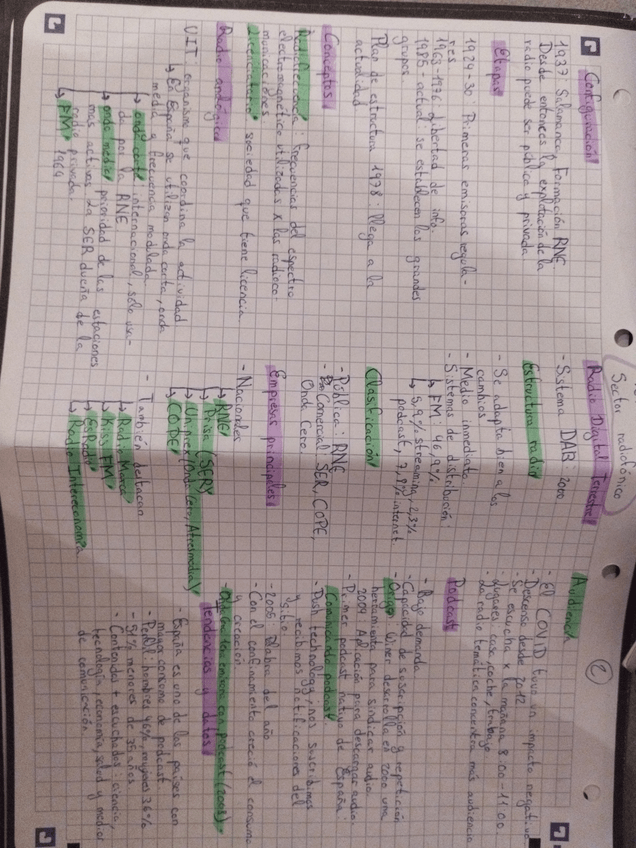 Sector radiofónico
2
Configuración
1937: Salamanca Formación RNE
Desde entonces la explotación de la
radio puede ser pública y privada
Etapas
1924-30: Primeras emisoras regula-
res.
1963-1976: libertad de info.
1985-actual: se establecen los grandes
grupos.
Plan de estructura 1978 llega a la
actualidad
Conceptos
Radiofrecuencia: frecuencias del espectro
electromagnético utilizadas x las radioco-
municaciones
Licenciatario: sociedad que tiene licencia
Radio analógica
UIT: organismo que coordina la actividad
→ En España se utilizan onda corta, onda
media y frecuencia modulada
↳ onda corta: internacional, solo usa-
da por la RNE
↳ onda media: prioridad de las estaciones
mas activas. La SER dueña de la
radio privada.
↳ FM: 1964
Radio Digital Terrestre
- Sistema DAB 2000
Estructura radio
- Se adapta bien a los
cambios
- Medio inmediato
- Sistemas de distribución
↳ FM: 46,9%
↳ 5,9% streaming, 2,3%
podcast, 7,8% internet
Clasificación
- Pública: RNE
- Comercial: SER, COPE,
Onda Cero
Empresas principales
- Nacionales
↳ RNE
↳ Prisa (SER)
↳ Uniprex (Onda Cero, Atresmedia)
↳ COPE
- También destacan
↳ Radio Marca
↳ Kiss FM
↳ EsRadio
↳ Radio Intereconomía
Audiencia
- El COVID tuvo un impacto negativo
- Descenso desde 2012
- Se escucha x la mañana 8:00-11:00
- Lugares: casa, coche, trabajo
- La radio temática concentra más audiencia
Podcast
- Bajo demanda
- Capacidad de suscripción y repetición
- Origen: Winer desarrolla en 2000 una
herramienta para sindicar audio.
2004 Aplicación para descargar audio.
- Primer podcast nativo de España:
Comunicando podcast.
- Push technology: nos suscribimos
y recibimos notificaciones del
sitio
- 2005: Palabra del año
- Con el confinamiento creció el consumo
y creación
Tendencias y datos
- España es uno de los países con
mayor consumo de podcast
- Perfil: hombres 46%, mujeres 36%
- 51% menores de 35 años
- Contenidos + escuchados: ciencia,
tecnología, economía, salud y medios
de comunicación.